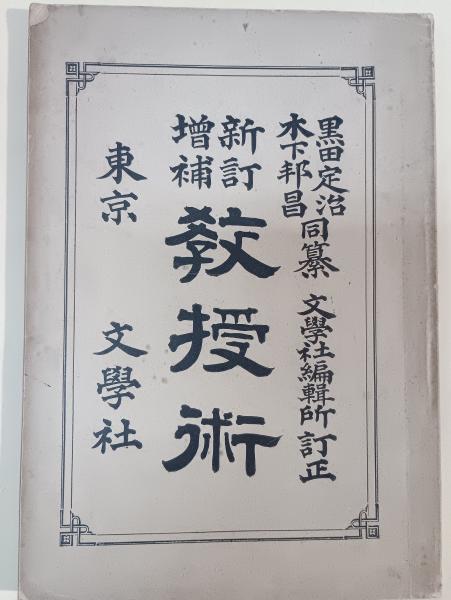 黒田定治
木下邦昌
同纂 文學社編輯所訂正
新訂
增補
敎授術
東京 文學社